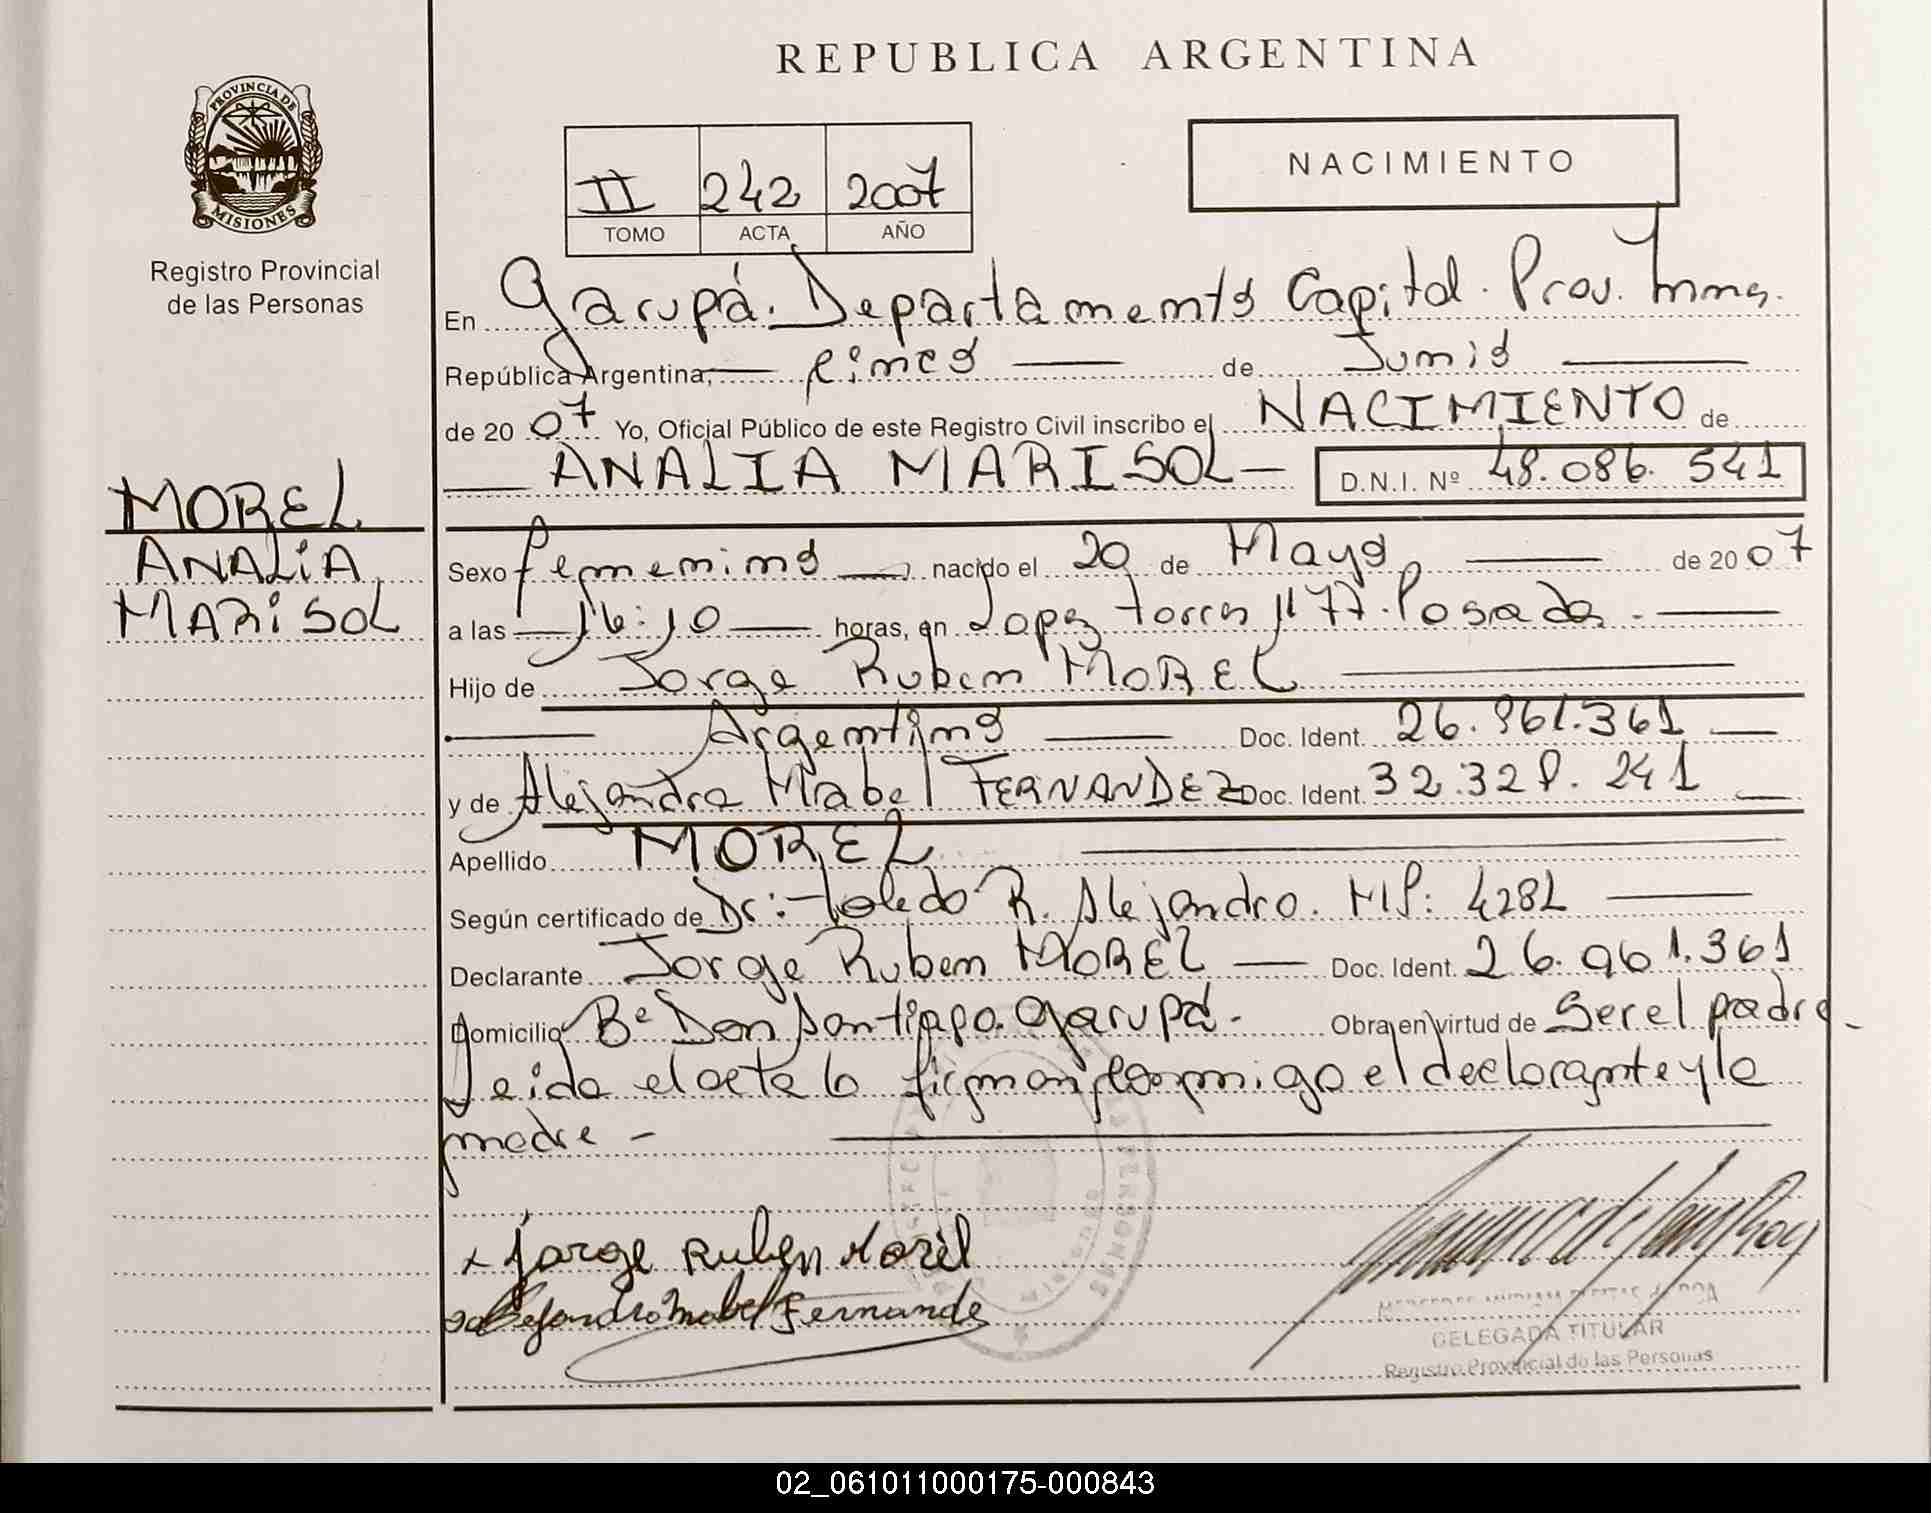 REPUBLICA ARGENTINA
PROVINCIA DE
MISIONES
Registro Provincial
de las Personas
II 242 2007
TOMO ACTA AÑO
NACIMIENTO
En Garupá. Departamento Capital. Prov. Mnes.
República Argentina, cinco de Junio
de 2007 Yo, Oficial Público de este Registro Civil inscribo el NACIMIENTO de
ANALIA MARISOL D.N.I. Nº 48.086.541
MOREL
ANALiA
MARiSOL
Sexo femenino nacido el 20 de Mayo de 2007
a las 16:10 horas, en Lopez Torres 1177. Posadas.
Hijo de Jorge Ruben MOREL
Argentino Doc. Ident. 26.961.361
y de Alejandra Mabel FERNANDEZ Doc. Ident. 32.328.241
Apellido MOREL
Según certificado de Dr: Toledo R. Alejandro. MP: 4282
Declarante Jorge Ruben MOREL Doc. Ident. 26.961.361
Domicilio Bº Don Santiago. Garupá. Obra en virtud de Ser el padre.
Leida el acta la firman conmigo el declarante y la
madre -
x Jorge Ruben Morel
Alejandra Mabel Fernande
DELEGADA TITULAR
Registro Provincial de las Personas
02_061011000175-000843